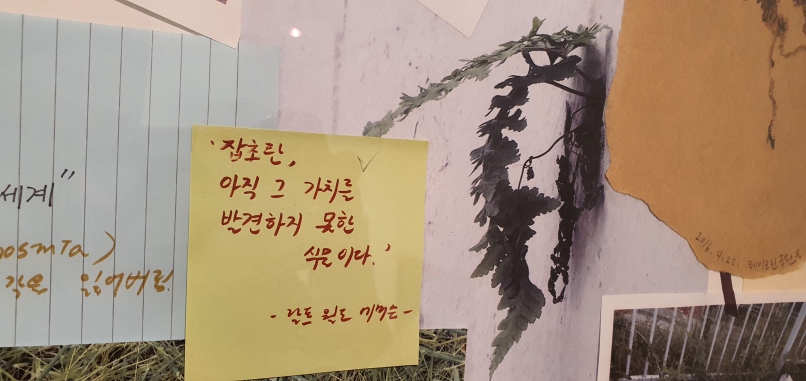 세계"
osmia)
각을 잃어버림
'잡초란,
아직 그 가치를
발견하지 못한
식물이다.'
- 랄프 왈도 에머슨 -
2016. 4. 22.